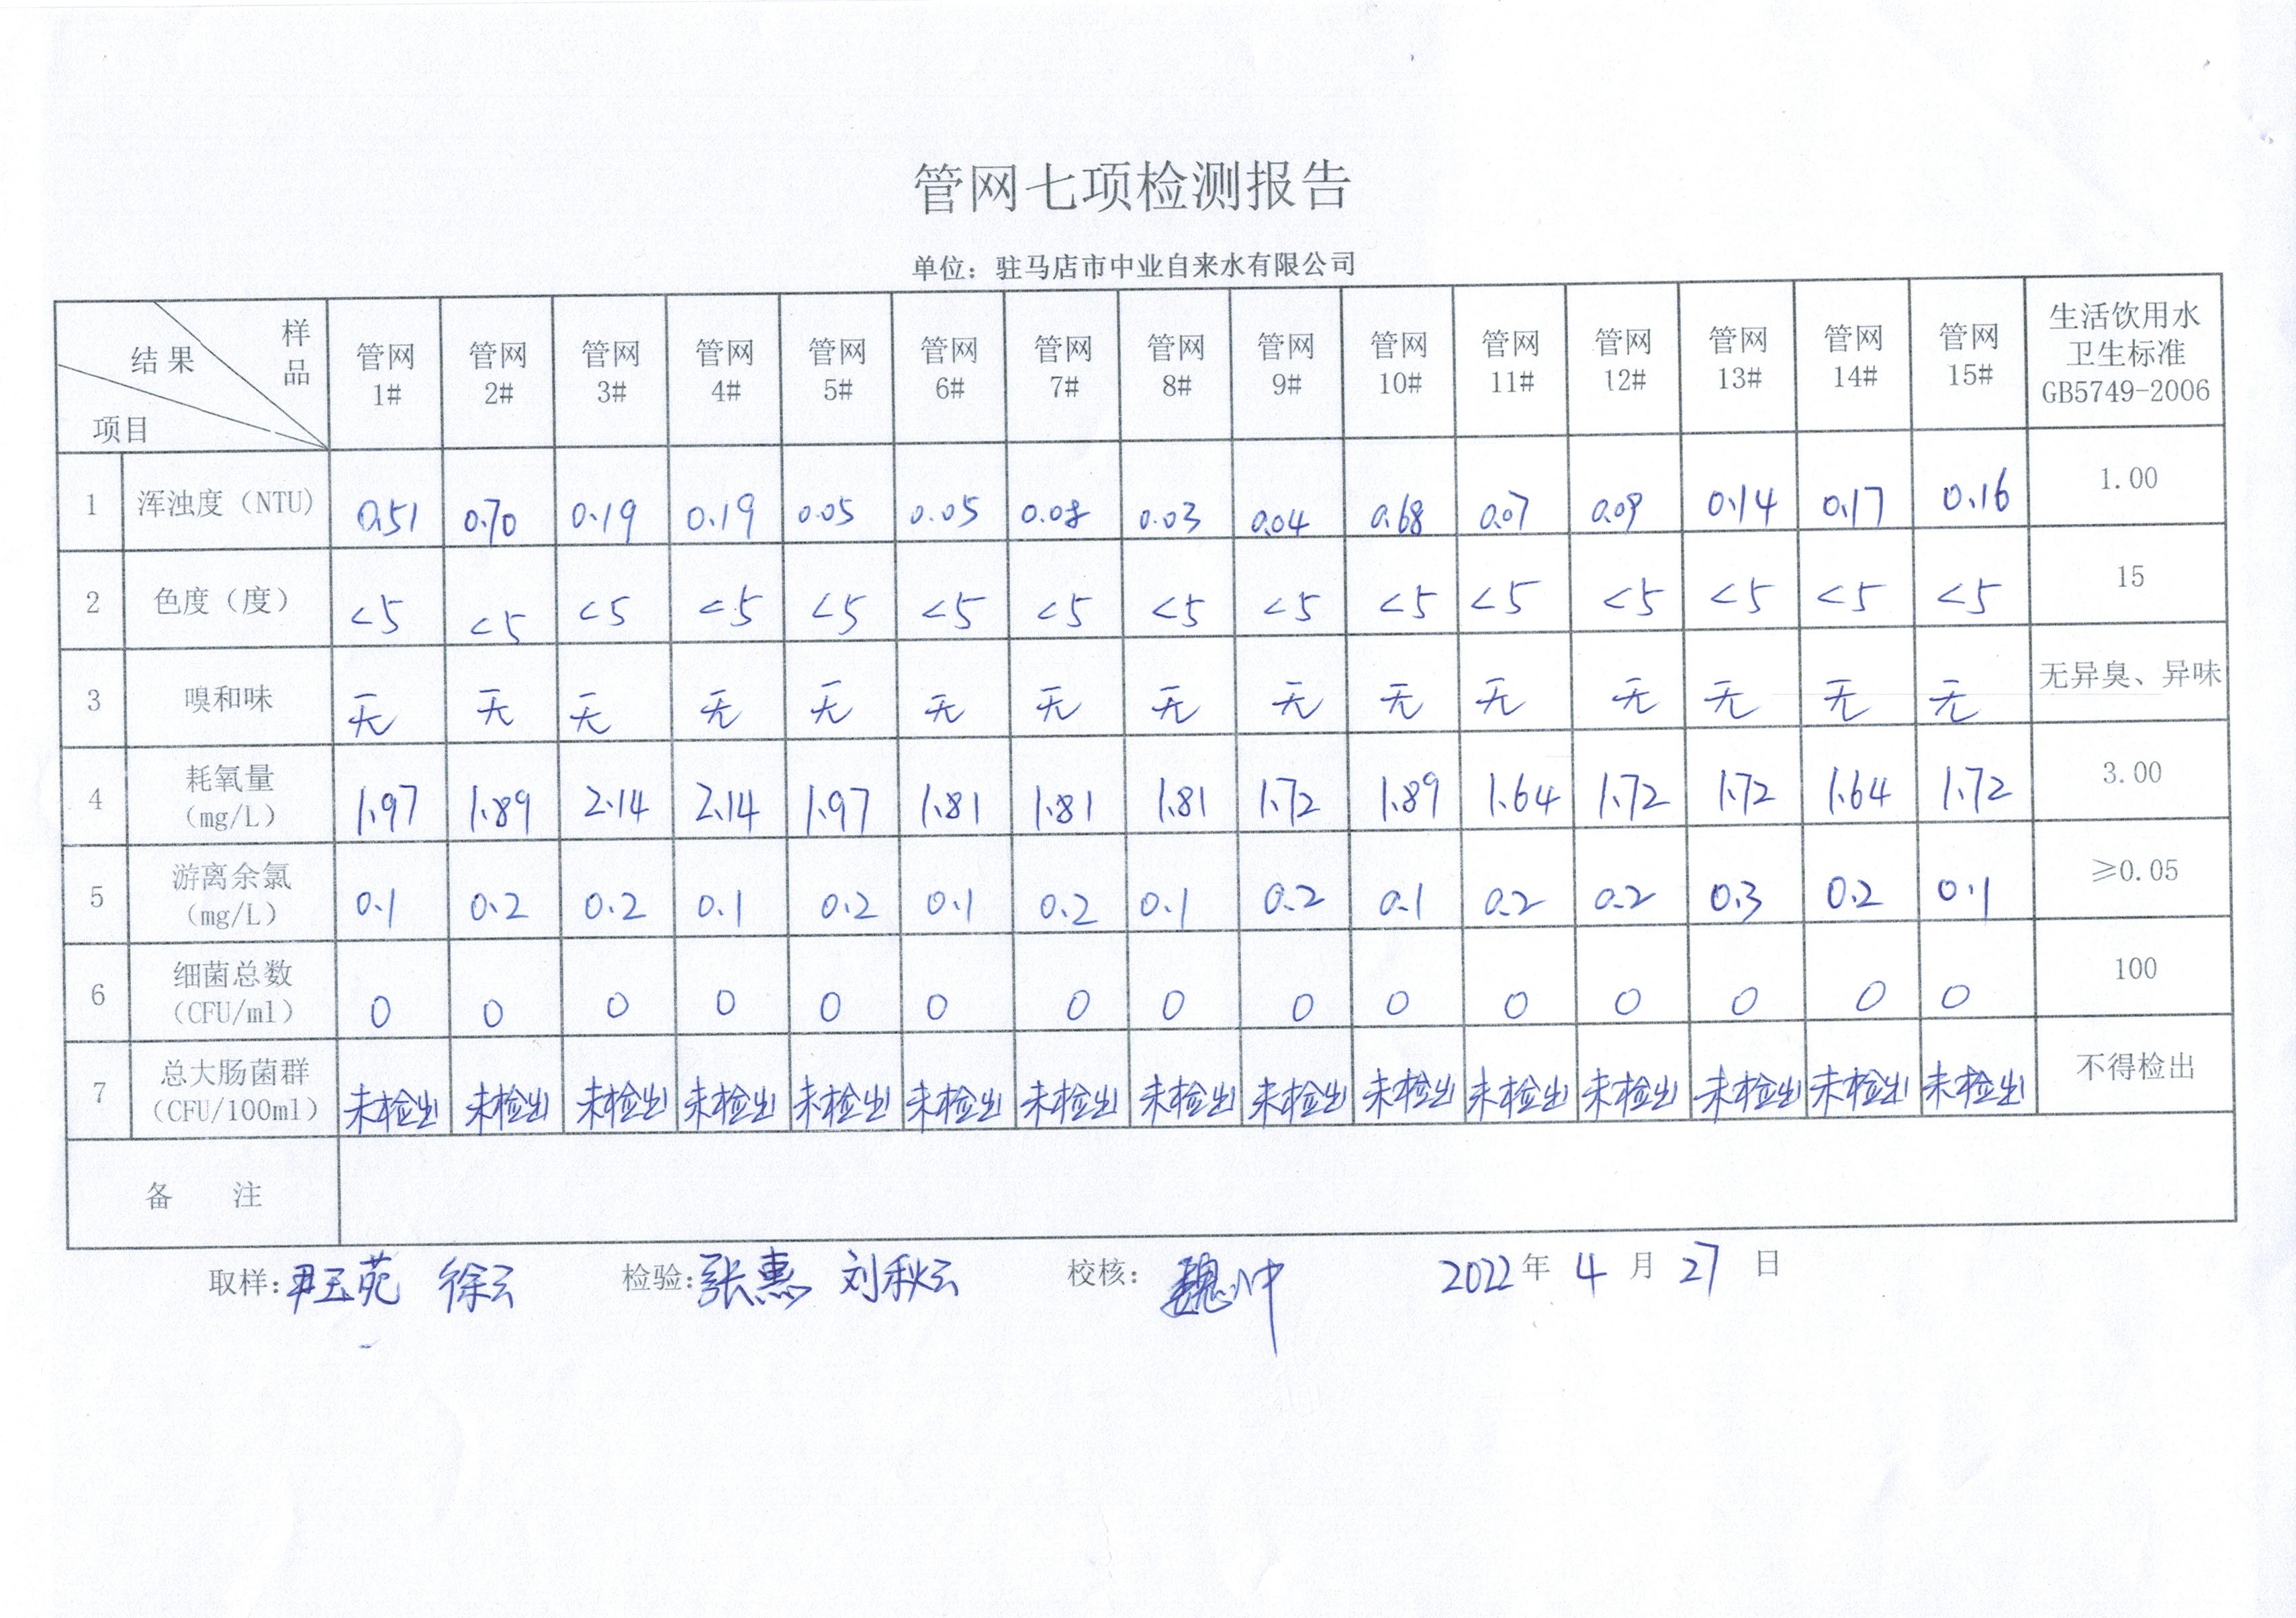 管网七项检测报告
单位：驻马店市中业自来水有限公司
项目 结果 样品 管网1# 管网2# 管网3# 管网4# 管网5# 管网6# 管网7# 管网8# 管网9# 管网10# 管网11# 管网12# 管网13# 管网14# 管网15# 生活饮用水卫生标准GB5749-2006
1 浑浊度（NTU） 0.51 0.70 0.19 0.19 0.05 0.05 0.08 0.03 0.04 0.68 0.07 0.09 0.14 0.17 0.16 1.00
2 色度（度） <5 <5 <5 <5 <5 <5 <5 <5 <5 <5 <5 <5 <5 <5 <5 15
3 嗅和味 无 无 无 无 无 无 无 无 无 无 无 无 无 无 无 无异臭、异味
4 耗氧量（mg/L） 1.97 1.89 2.14 2.14 1.97 1.81 1.81 1.81 1.72 1.89 1.64 1.72 1.72 1.64 1.72 3.00
5 游离余氯（mg/L） 0.1 0.2 0.2 0.1 0.2 0.1 0.2 0.1 0.2 0.1 0.2 0.2 0.3 0.2 0.1 ≥0.05
6 细菌总数（CFU/ml） 0 0 0 0 0 0 0 0 0 0 0 0 0 0 0 100
7 总大肠菌群（CFU/100ml） 未检出 未检出 未检出 未检出 未检出 未检出 未检出 未检出 未检出 未检出 未检出 未检出 未检出 未检出 未检出 不得检出
备 注
取样：尹玉苑 徐云 检验：张惠 刘秋云 校核：魏冲 2022年4月27日